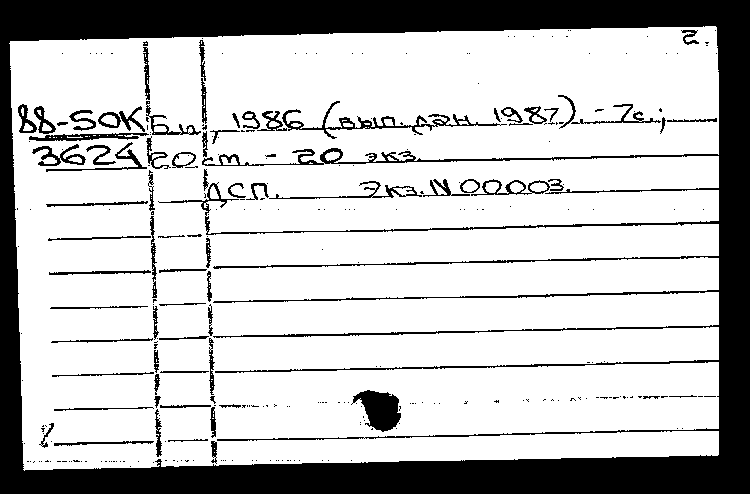 2.
88-50К Б.и., 1986 (вып. дан. 1987). - 7с.;
3624 20 см. - 20 экз.
ДСП. Экз. N 00003.